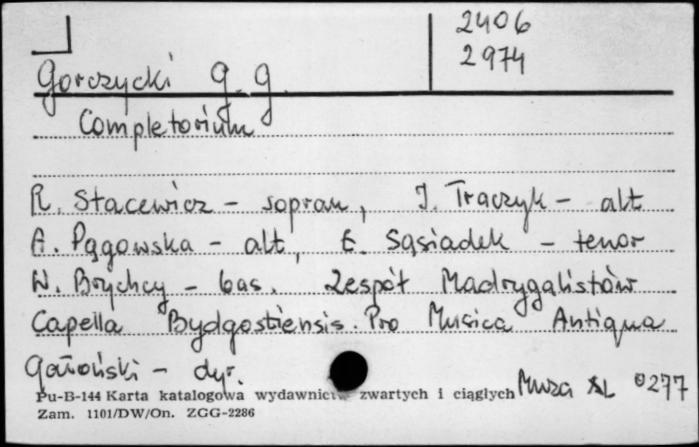 2406
2974
Gorczycki G. G.
Completorium
R. Stacewicz - sopran, J. Traczyk - alt
A. Pągowska - alt, E. Sąsiadek - tenor
W. Brychcy - bas. Zespół Madrygalistów
Capella Bydgostiensis. Pro Musica Antiqua
Gałoński - dyr.
Pu-B-144 Karta katalogowa wydawnictw zwartych i ciągłych Muza XL 0277
Zam. 1101/DW/On. ZGG-2286